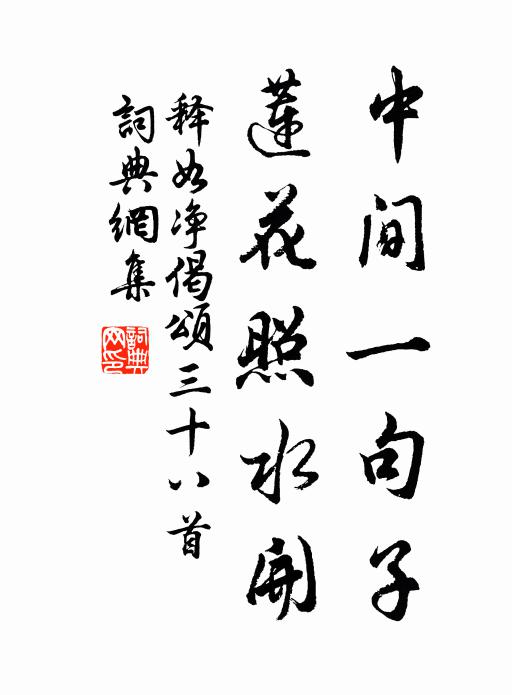 中間一句子
蓮花照水開
释如净偈頌三十八首
詞典網集
詞典網印